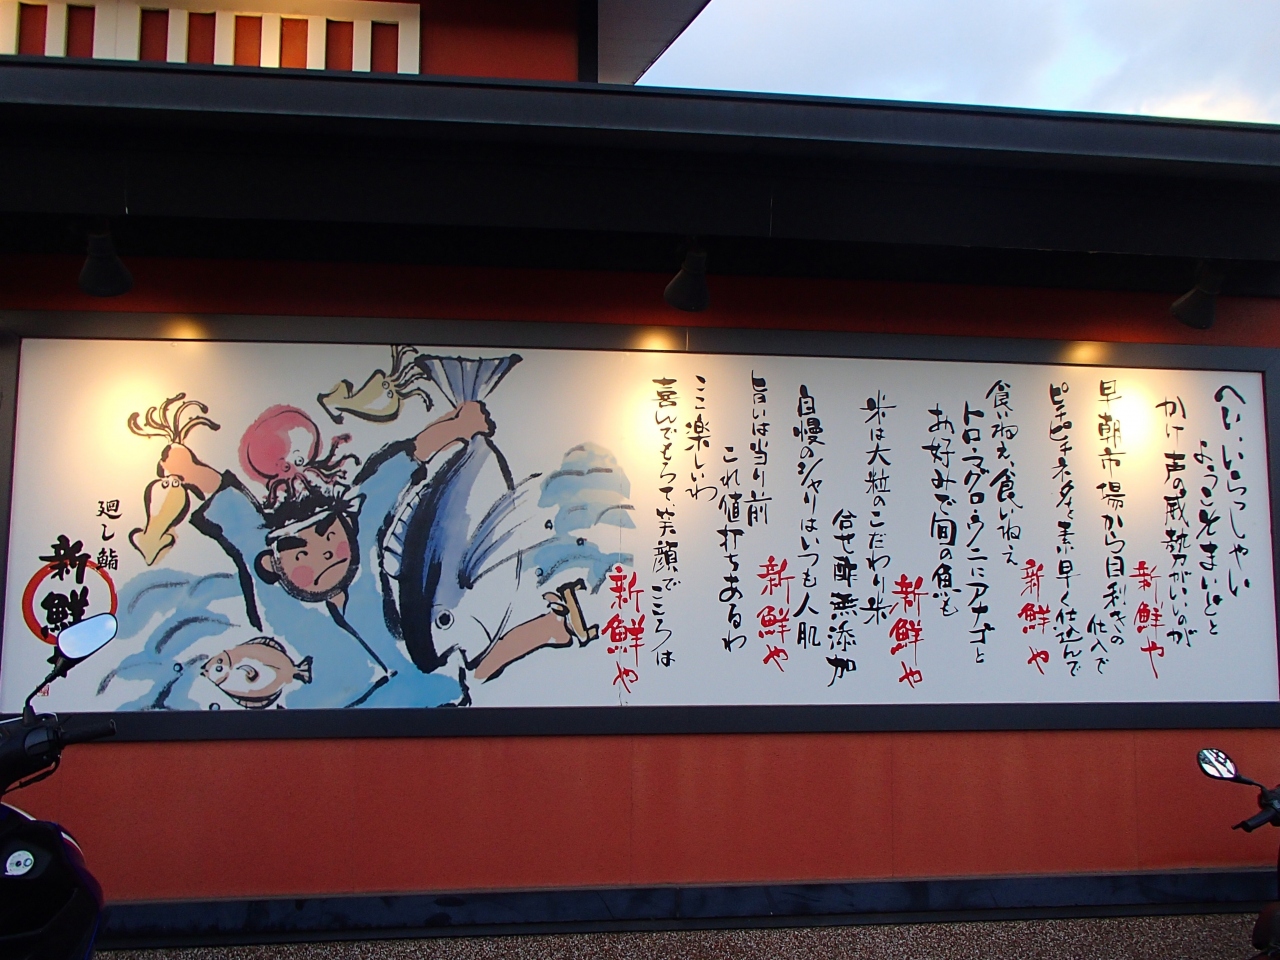 へい、いらっしゃい
ようこそまいどと
かけ声の威勢がいいのが
新鮮や
早朝市場から目利きの
仕入で
ピチピチネタを素早く仕込んで
新鮮や
食いねぇ、食いねぇ
トロ・マグロ・ウニにアナゴと
お好みで旬の魚も
新鮮や
米は大粒のこだわり米
自慢のシャリはいつも人肌
合せ酢無添加
新鮮や
旨いは当り前
これ値打ちあるわ
ここ楽しいわ
喜んでもらて、笑顔でこころは
新鮮や
廻し鮨
新鮮